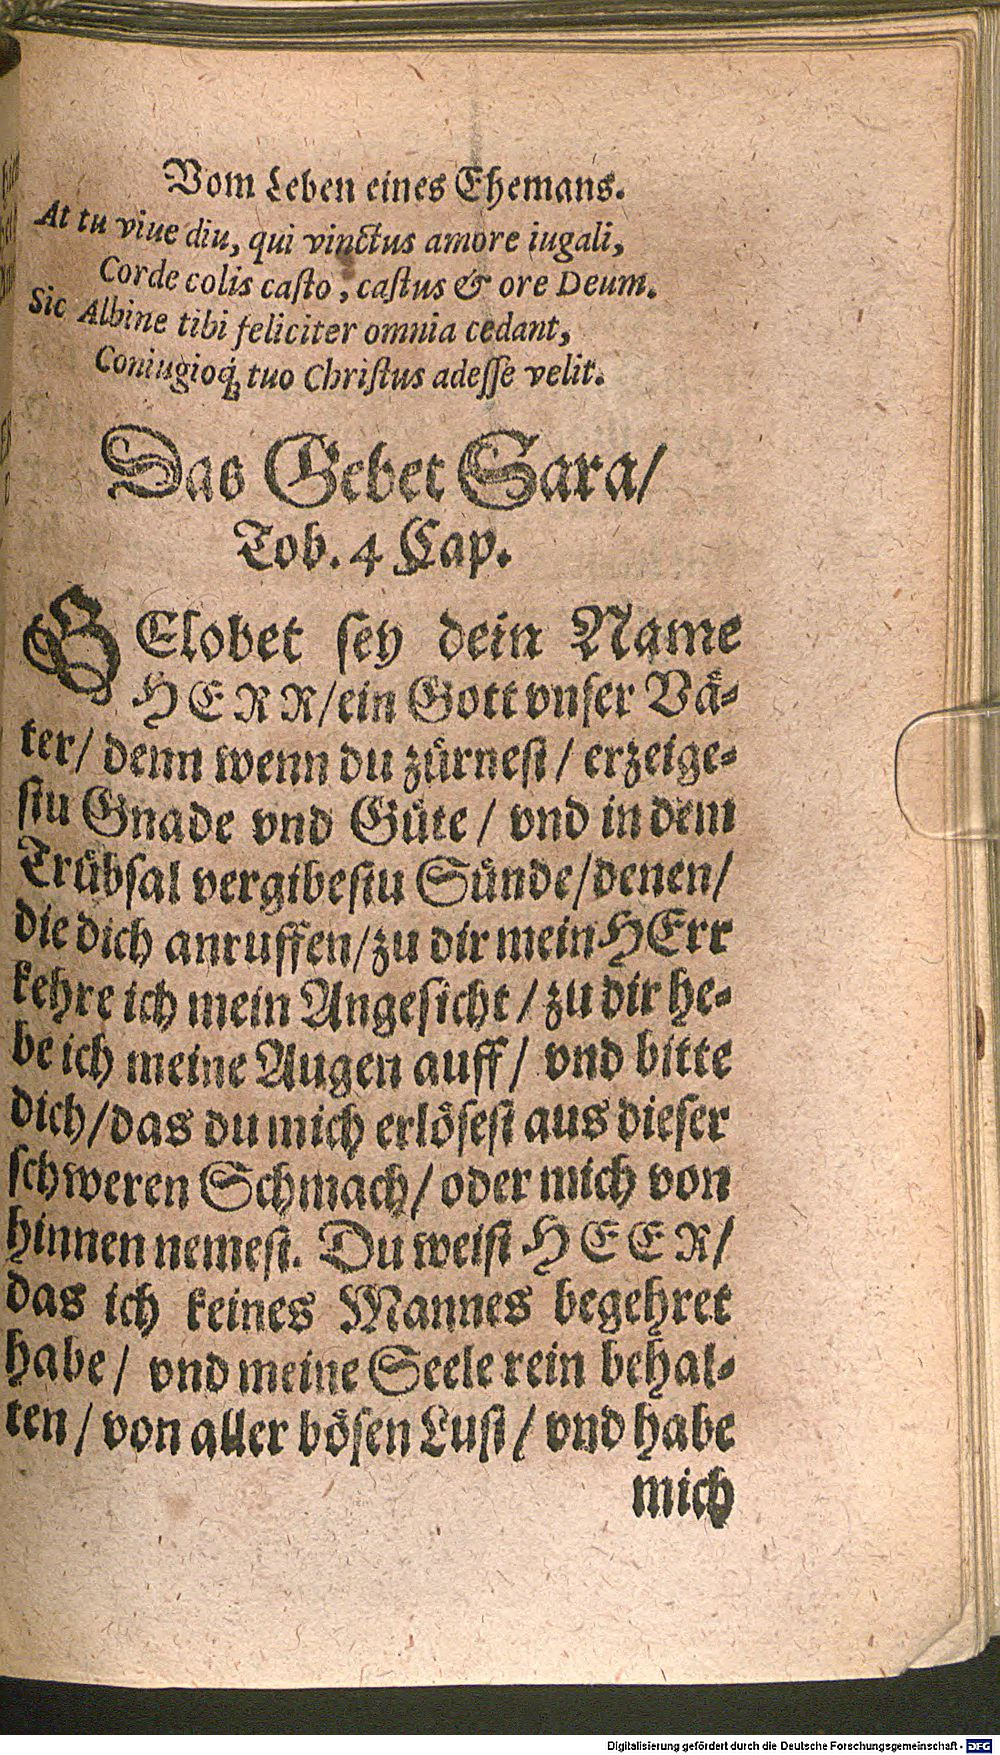 Vom Leben eines Ehemans.
At tu viue diu, qui vinctus amore iugali,
Corde colis casto, castus & ore Deum.
Sic Albine tibi feliciter omnia cedant,
Coniugioq́ꝫ tuo Christus adesse velit.
Das Gebet Sara/
Tob. 4 Cap.
GElobet sey dein Name
HERR/ein Gott vnser Vå-
ter/ denn wenn du zürnest/ erzeige-
stu Gnade vnd Güte/ vnd in dem
Trübsal vergibestu Sünde/denen/
die dich anruffen/zu dir mein HErr
kehre ich mein Angesicht/ zu dir he-
be ich meine Augen auff/ vnd bitte
dich/das du mich erlösest aus dieser
schweren Schmach/ oder mich von
hinnen nemest. Du weist HEER/
das ich keines Mannes begehret
habe/ vnd meine Seele rein behal-
ten/ von aller bösen Lust/ vnd habe
mich
Digitalisierung gefördert durch die Deutsche Forschungsgemeinschaft - DFG